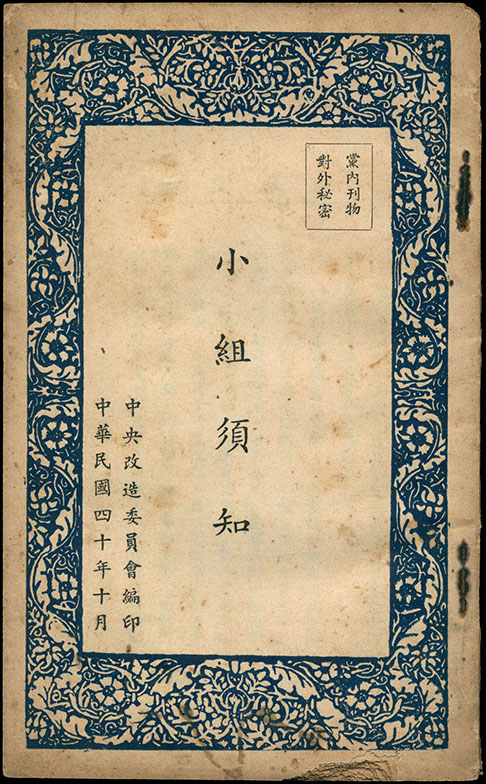 黨內刊物
對外秘密
小組須知
中央改造委員會編印
中華民國四十年十月